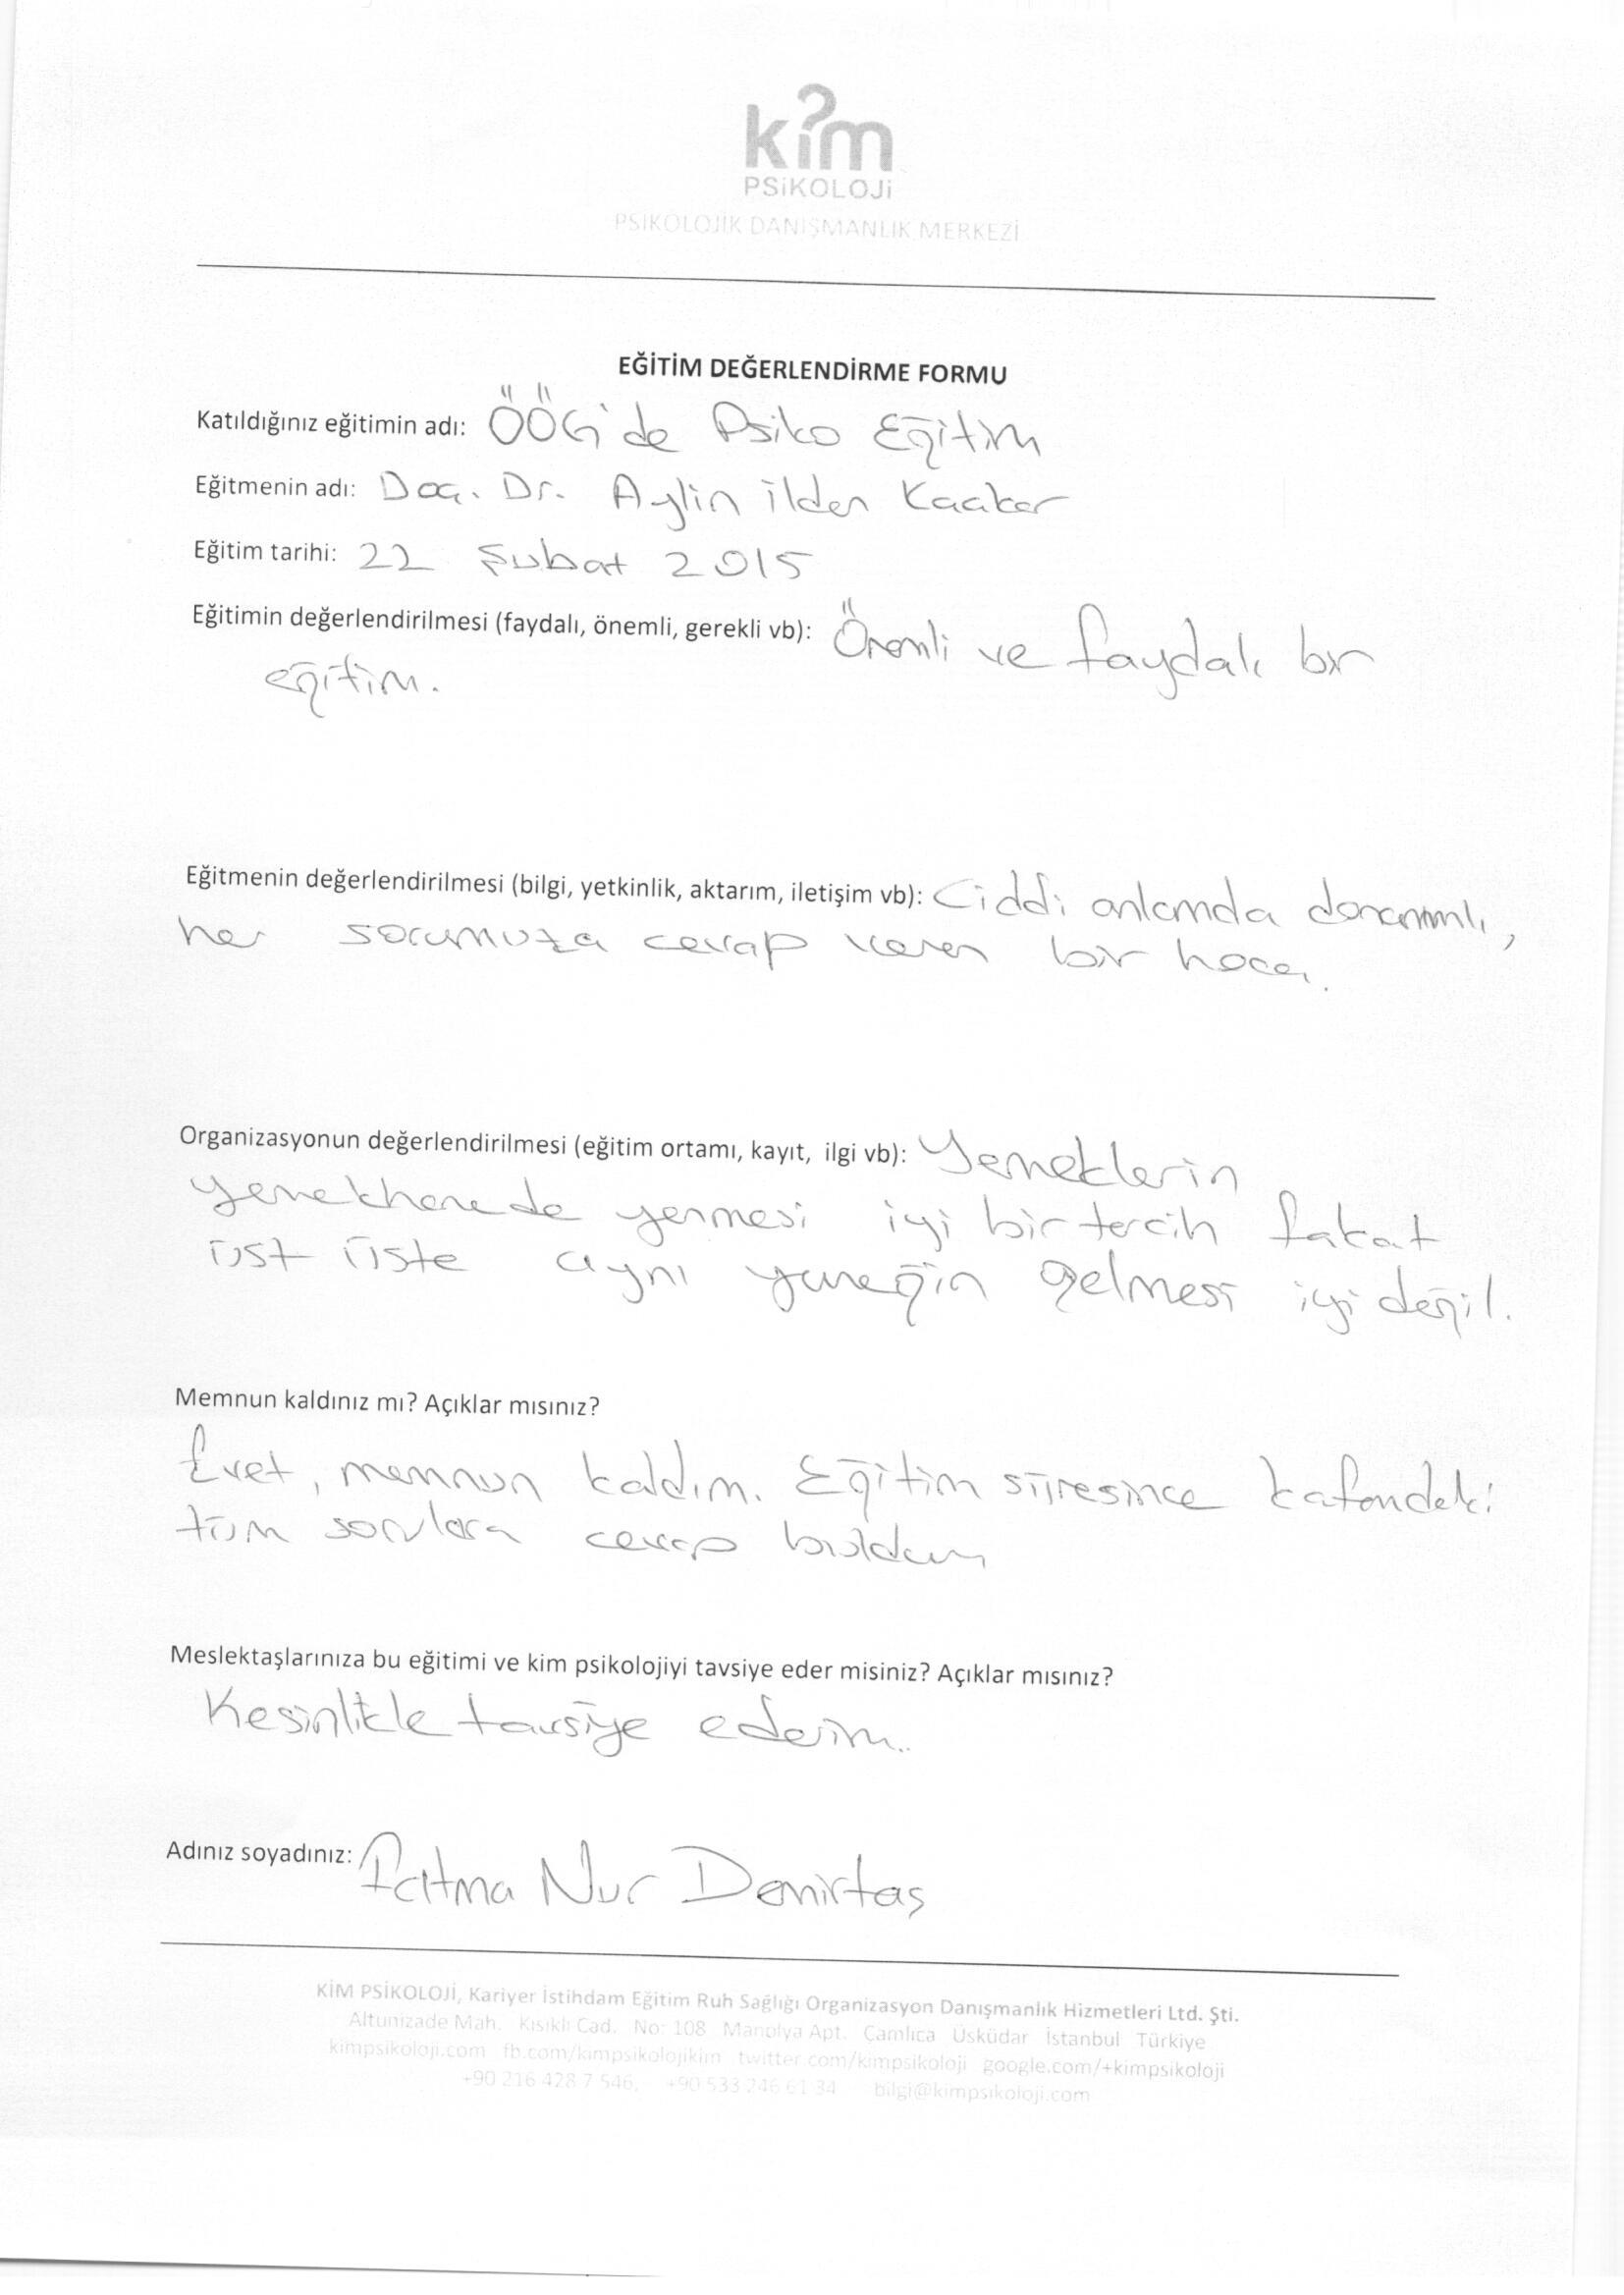 kim
PSiKOLOJi
PSİKOLOJİK DANIŞMANLIK MERKEZİ
EĞİTİM DEĞERLENDİRME FORMU
Katıldığınız eğitimin adı: ÖÖG'de Psiko Eğitim
Eğitmenin adı: Doç. Dr. Aylin ilden Koçkar
Eğitim tarihi: 22 Şubat 2015
Eğitimin değerlendirilmesi (faydalı, önemli, gerekli vb): Önemli ve faydalı bir
eğitim.
Eğitmenin değerlendirilmesi (bilgi, yetkinlik, aktarım, iletişim vb): Ciddi anlamda donanımlı,
her sorumuza cevap veren bir hoca.
Organizasyonun değerlendirilmesi (eğitim ortamı, kayıt, ilgi vb): Yemeklerin
yemekhanede yenmesi iyi bir tercih fakat
üst üste aynı yemeğin gelmesi iyi değil.
Memnun kaldınız mı? Açıklar mısınız?
Evet, memnun kaldım. Eğitim süresince kafamdaki
tüm sorulara cevap buldum
Meslektaşlarınıza bu eğitimi ve kim psikolojiyi tavsiye eder misiniz? Açıklar mısınız?
Kesinlikle tavsiye ederim..
Adınız soyadınız: Fatma Nur Demirtaş
KİM PSİKOLOJİ, Kariyer İstihdam Eğitim Ruh Sağlığı Organizasyon Danışmanlık Hizmetleri Ltd. Şti.
Altunizade Mah. Kısıklı Cad. No: 108 Manolya Apt. Çamlıca Üsküdar İstanbul Türkiye
kimpsikoloji.com fb.com/kimpsikolojikim twitter.com/kimpsikoloji google.com/+kimpsikoloji
+90 216 428 7 546, +90 533 246 61 34 bilgi@kimpsikoloji.com